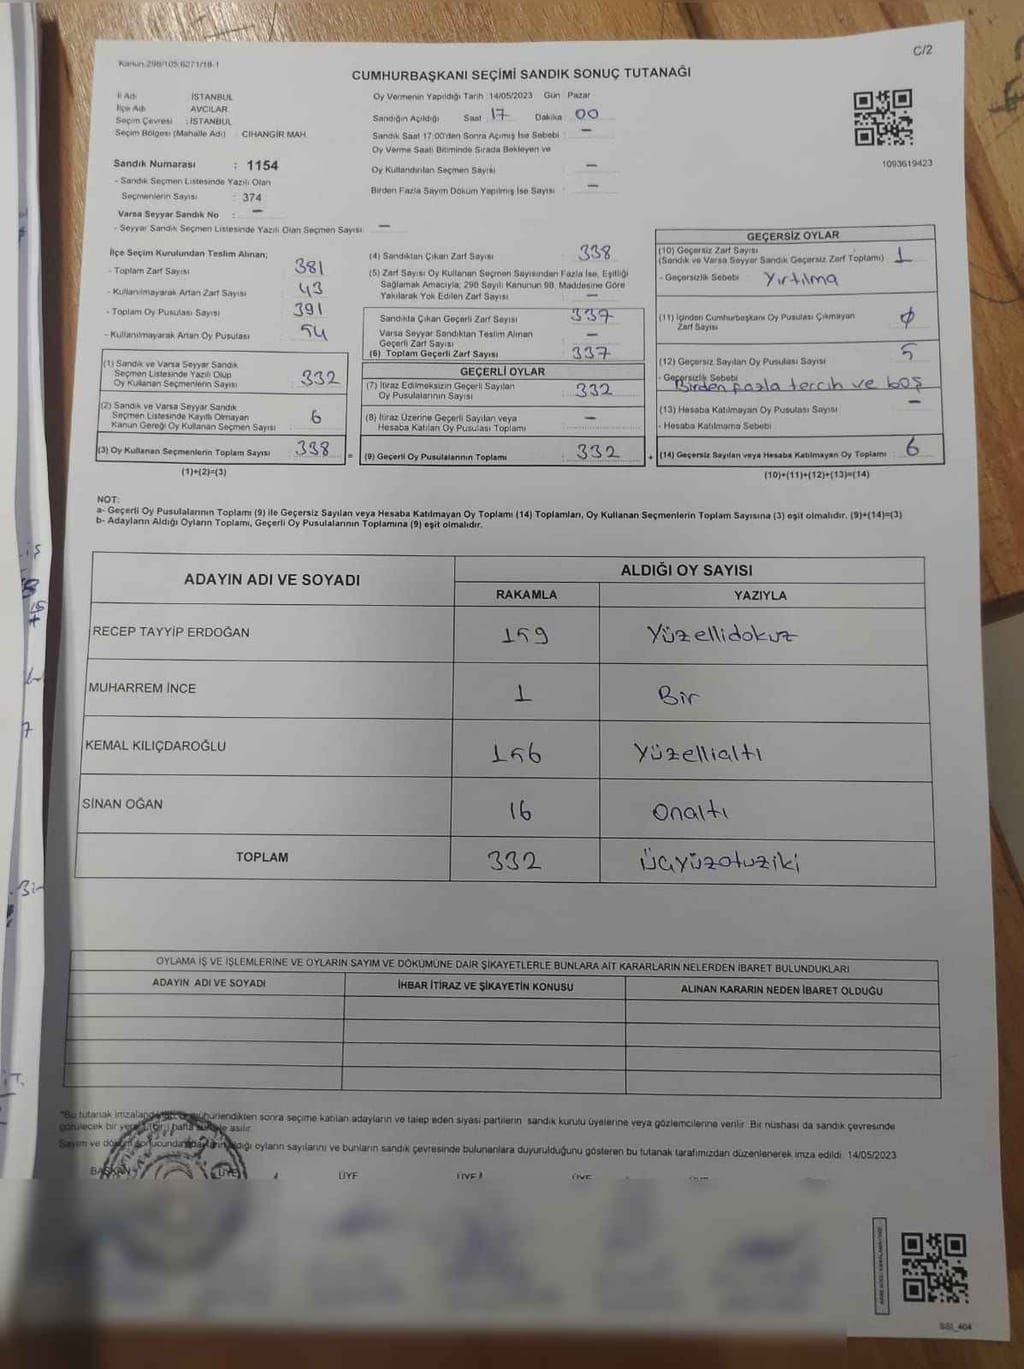 C/2
Kanun.298/105.6271/18-1
CUMHURBAŞKANI SEÇİMİ SANDIK SONUÇ TUTANAĞI
İl Adı : İSTANBUL
İlçe Adı : AVCILAR
Seçim Çevresi : İSTANBUL
Seçim Bölgesi (Mahalle Adı) : CİHANGİR MAH.
Sandık Numarası : 1154
- Sandık Seçmen Listesinde Yazılı Olan
Seçmenlerin Sayısı : 374
Varsa Seyyar Sandık No : –
- Seyyar Sandık Seçmen Listesinde Yazılı Olan Seçmen Sayısı: –
Oy Vermenin Yapıldığı Tarih :14/05/2023 Gün Pazar
Sandığın Açıldığı Saat 17 Dakika 00
Sandık Saat 17:00'den Sonra Açmış İse Sebebi : –
Oy Verme Saati Bitiminde Sırada Bekleyen ve
Oy Kullandırılan Seçmen Sayısı : –
Birden Fazla Sayım Döküm Yapılmış İse Sayısı : –
1093619423
İlçe Seçim Kurulundan Teslim Alınan;
- Toplam Zarf Sayısı 381
- Kullanılmayarak Artan Zarf Sayısı 43
- Toplam Oy Pusulası Sayısı 391
- Kullanılmayarak Artan Oy Pusulası 54
(1) Sandık ve Varsa Seyyar Sandık
Seçmen Listesinde Yazılı Olup
Oy Kullanan Seçmenlerin Sayısı 332
(2) Sandık ve Varsa Seyyar Sandık
Seçmen Listesinde Kayıtlı Olmayan
Kanun Gereği Oy Kullanan Seçmen Sayısı 6
(3) Oy Kullanan Seçmenlerin Toplam Sayısı 338
(1)+(2)=(3)
(4) Sandıktan Çıkan Zarf Sayısı 338
(5) Zarf Sayısı Oy Kullanan Seçmen Sayısından Fazla İse, Eşitliği
Sağlamak Amacıyla; 298 Sayılı Kanunun 98. Maddesine Göre
Yakılarak Yok Edilen Zarf Sayısı –
Sandıkta Çıkan Geçerli Zarf Sayısı 337
Varsa Seyyar Sandıktan Teslim Alınan
Geçerli Zarf Sayısı –
(6) Toplam Geçerli Zarf Sayısı 337
GEÇERLİ OYLAR
(7) İtiraz Edilmeksizin Geçerli Sayılan
Oy Pusulalarının Sayısı 332
(8) İtiraz Üzerine Geçerli Sayılan veya
Hesaba Katılan Oy Pusulası Toplamı –
= (9) Geçerli Oy Pusulalarının Toplamı 332
GEÇERSİZ OYLAR
(10) Geçersiz Zarf Sayısı
(Sandık ve Varsa Seyyar Sandık Geçersiz Zarf Toplamı) 1
- Geçersizlik Sebebi : Yırtılma
(11) İçinden Cumhurbaşkanı Oy Pusulası Çıkmayan
Zarf Sayısı ϕ
(12) Geçersiz Sayılan Oy Pusulası Sayısı 5
- Geçersizlik Sebebi
Birden fazla tercih ve boş
(13) Hesaba Katılmayan Oy Pusulası Sayısı –
- Hesaba Katılmama Sebebi :
+ (14) Geçersiz Sayılan veya Hesaba Katılmayan Oy Toplamı : 6
(10)+(11)+(12)+(13)=(14)
NOT:
a- Geçerli Oy Pusulalarının Toplamı (9) ile Geçersiz Sayılan veya Hesaba Katılmayan Oy Toplamı (14) Toplamları, Oy Kullanan Seçmenlerin Toplam Sayısına (3) eşit olmalıdır. (9)+(14)=(3)
b- Adayların Aldığı Oyların Toplamı, Geçerli Oy Pusulalarının Toplamına (9) eşit olmalıdır.
ADAYIN ADI VE SOYADI
ALDIĞI OY SAYISI
RAKAMLA YAZIYLA
RECEP TAYYİP ERDOĞAN 159 Yüzellidokuz
MUHARREM İNCE 1 Bir
KEMAL KILIÇDAROĞLU 156 Yüzellialtı
SİNAN OĞAN 16 Onaltı
TOPLAM 332 Üçyüzotuziki
OYLAMA İŞ VE İŞLEMLERİNE VE OYLARIN SAYIM VE DÖKÜMÜNE DAİR ŞİKAYETLERLE BUNLARA AİT KARARLARIN NELERDEN İBARET BULUNDUKLARI
ADAYIN ADI VE SOYADI İHBAR İTİRAZ VE ŞİKAYETİN KONUSU ALINAN KARARIN NEDEN İBARET OLDUĞU
"Bu tutanak mühürlendikten sonra seçime katılan adayların ve talep eden siyasi partilerin sandık kurulu üyelerine veya gözlemcilerine verilir. Bir nüshası da sandık çevresinde
görülecek bir yere asılır.
Sayım ve döküm sonucunda oyların sayılarını ve bunların sandık çevresinde bulunanlara duyurulduğunu gösteren bu tutanak tarafımızdan düzenlenerek imza edildi. 14/05/2023
BAŞKAN ÜYE ÜYE ÜYE ÜYE
SSI_404